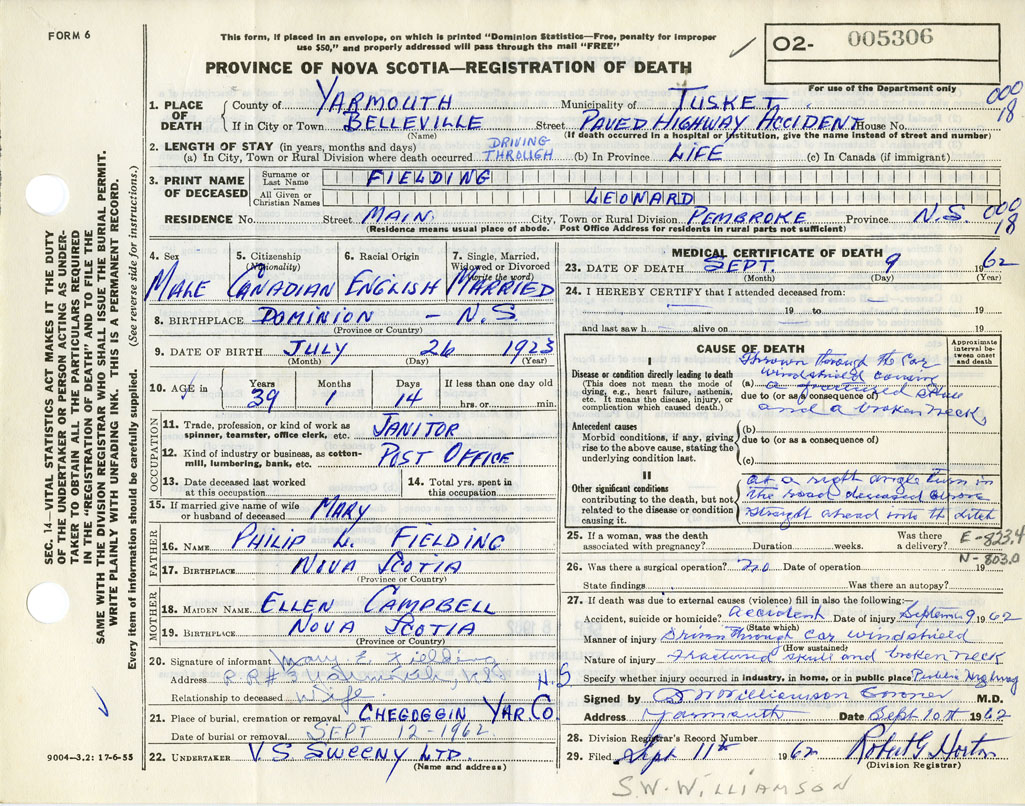 FORM 6
This form, if placed in an envelope, on which is printed "Dominion Statistics—Free, penalty for improper
use $50," and properly addressed will pass through the mail "FREE"
O2- 005306
For use of the Department only
PROVINCE OF NOVA SCOTIA—REGISTRATION OF DEATH
000
18
1. PLACE OF DEATH { County of YARMOUTH Municipality of TUSKET
If in City or Town BELLEVILLE Street PAVED HIGHWAY ACCIDENT House No.
(Name) (If death occurred in a hospital or institution, give the name instead of street and number)
2. LENGTH OF STAY (in years, months and days)
(a) In City, Town or Rural Division where death occurred DRIVING THROUGH (b) In Province LIFE (c) In Canada (if immigrant)
3. PRINT NAME OF DECEASED { Surname or Last Name FIELDING
All Given or Christian Names LEONARD
RESIDENCE No. Street MAIN City, Town or Rural Division PEMBROKE Province N.S.
000
18
(Residence means usual place of abode. Post Office Address for residents in rural parts not sufficient)
4. Sex MALE
5. Citizenship (Nationality) CANADIAN
6. Racial Origin ENGLISH
7. Single, Married, Widowed or Divorced (write the word) MARRIED
8. BIRTHPLACE DOMINION - N.S
(Province or Country)
9. DATE OF BIRTH JULY 26 1923
(Month) (Day) (Year)
10. AGE in Years 39 Months 1 Days 14 If less than one day old hrs. or min.
OCCUPATION
11. Trade, profession, or kind of work as spinner, teamster, office clerk, etc. JANITOR
12. Kind of industry or business, as cotton-mill, lumbering, bank, etc. POST OFFICE
13. Date deceased last worked at this occupation
14. Total yrs. spent in this occupation
15. If married give name of wife or husband of deceased MARY
FATHER
16. NAME PHILIP L. FIELDING
17. BIRTHPLACE NOVA SCOTIA
(Province or Country)
MOTHER
18. MAIDEN NAME ELLEN CAMPBELL
19. BIRTHPLACE NOVA SCOTIA
(Province or Country)
20. Signature of informant Mary E. Fielding
Address R.R#3 Yarmouth, N.S
Relationship to deceased Wife
21. Place of burial, cremation or removal CHEGOGGIN YAR. CO
Date of burial or removal SEPT 12-1962
22. UNDERTAKER V S SWEENY LTD.
(Name and address)
MEDICAL CERTIFICATE OF DEATH
23. DATE OF DEATH SEPT. 9 1962
(Month) (Day) (Year)
24. I HEREBY CERTIFY that I attended deceased from:
— 19 to — 19
and last saw h — alive on — 19
CAUSE OF DEATH
Approximate interval between onset and death
I
Disease or condition directly leading to death
(This does not mean the mode of dying, e.g., heart failure, asthenia, etc. It means the disease, injury, or complication which caused death.)
(a) Thrown through the car
windshield causing
due to (or as a consequence of)
a fractured skull
and a broken neck,
Antecedent causes
Morbid conditions, if any, giving rise to the above cause, stating the underlying condition last.
(b)
due to (or as a consequence of)
(c)
II
Other significant conditions
contributing to the death, but not related to the disease or condition causing it.
at a right angle turn in
the road deceased drove
straight ahead into the ditch
25. If a woman, was the death associated with pregnancy? Duration weeks. Was there a delivery?
E-823.4
N-803.0
26. Was there a surgical operation? no Date of operation 19
State findings Was there an autopsy?
27. If death was due to external causes (violence) fill in also the following:
Accident, suicide or homicide? accident Date of injury Septem 9 1962
(State which)
Manner of injury through car windshield
(How sustained)
Nature of injury Fractured skull and broken neck
Specify whether injury occurred in industry, in home, or in public place Public Highway
Signed by S W Williamson Coroner M.D.
Address Yarmouth Date Sept 10th 1962
28. Division Registrar's Record Number
29. Filed Sept 11th 1962 Robert G Horton
(Division Registrar)
S.W. WILLIAMSON
SEC. 14—VITAL STATISTICS ACT MAKES IT THE DUTY
OF THE UNDERTAKER OR PERSON ACTING AS UNDER-
TAKER TO OBTAIN ALL THE PARTICULARS REQUIRED
IN THE "REGISTRATION OF DEATH" AND TO FILE THE
SAME WITH THE DIVISION REGISTRAR WHO SHALL ISSUE THE BURIAL PERMIT.
WRITE PLAINLY WITH UNFADING INK. THIS IS A PERMANENT RECORD.
Every item of information should be carefully supplied. (See reverse side for instructions.)
9004—3,2: 17-6-55